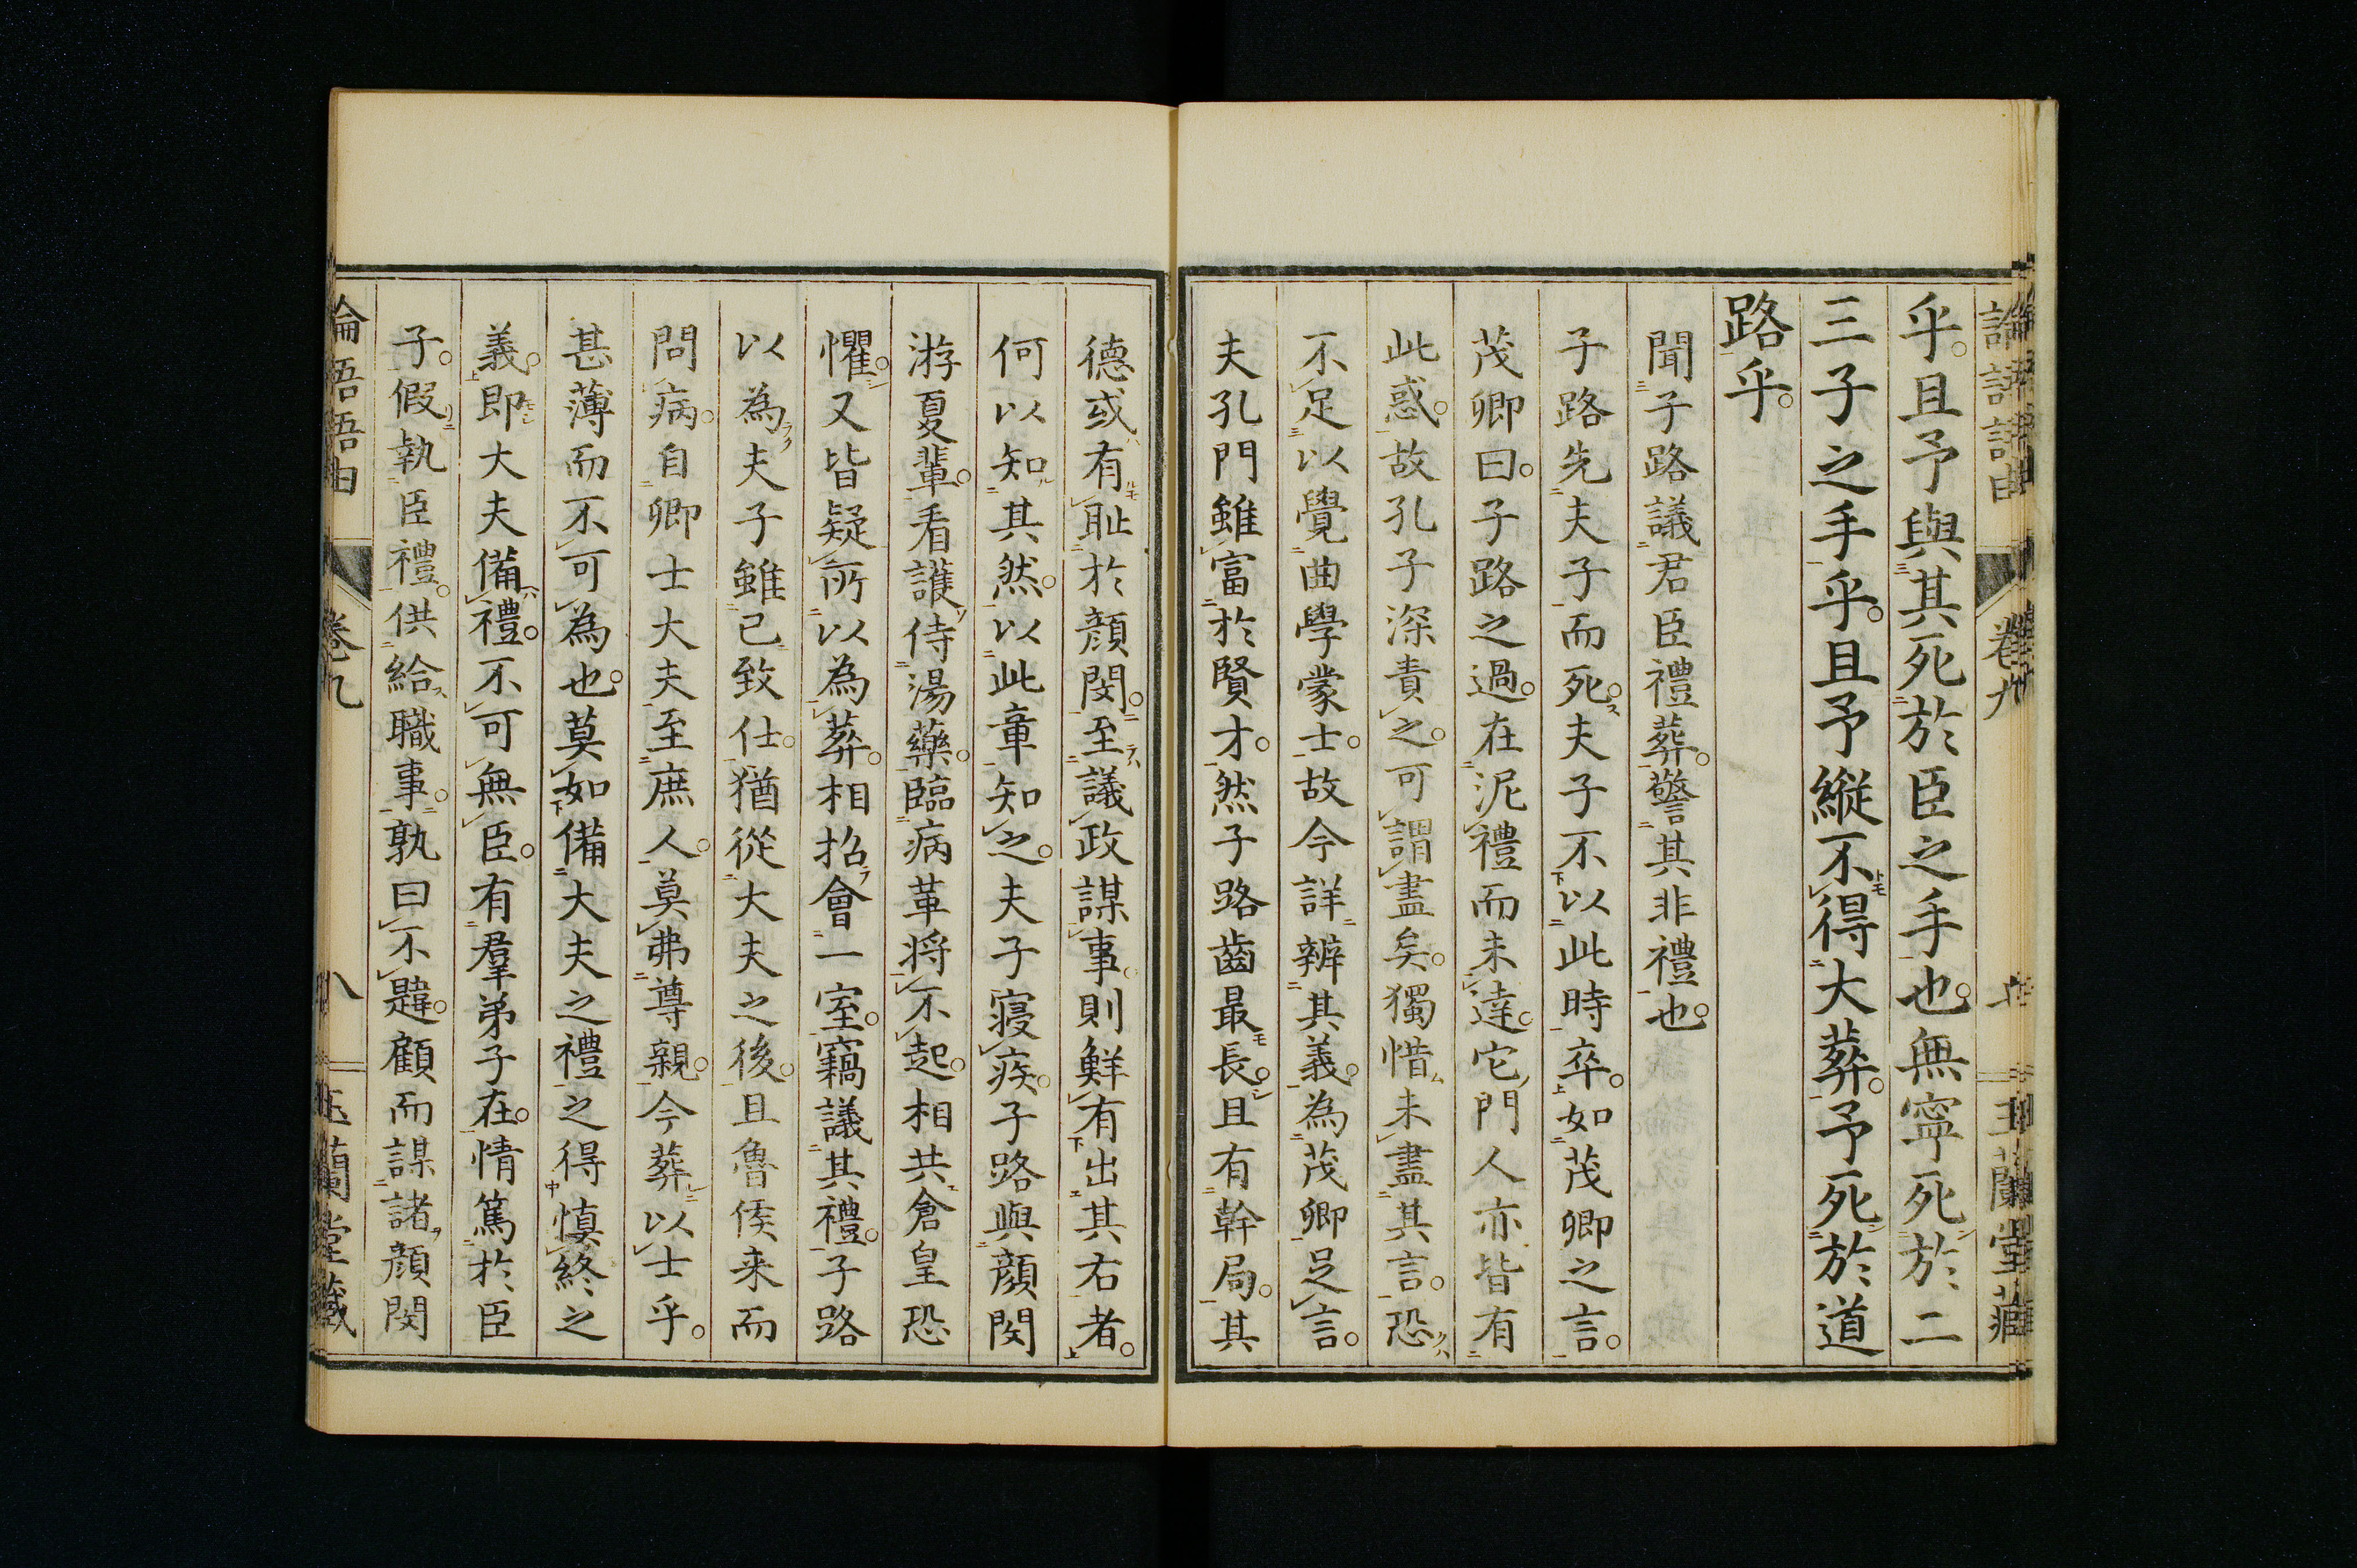 論語語由 卷九 玉蘭堂藏
乎。且予與其死於臣之手也。無寧死於二
三子之手乎。且予縱不得大葬。予死於道
路乎。
聞子路議君臣禮葬。警其非禮也。
子路先夫子而死。夫子不以此時卒。如茂卿之言。
茂卿曰。子路之過。在泥禮而未達。它門人亦皆有
此惑。故孔子深責之。可謂盡矣。獨惜未盡其言。恐
不足以覺曲學蒙士。故今詳辨其義。為茂卿足言。
夫孔門雖富於賢才。然子路齒最長。且有幹局。其
德或有恥於顏閔。至議政謀事。則鮮有出其右者。
何以知其然。以此章知之。夫子寢疾。子路與顏閔
游夏輩。看護侍湯藥。臨病革將不起。相共倉皇恐
懼。又皆疑所以為葬。相招會一室。竊議其禮。子路
以為夫子雖已致仕。猶從大夫之後。且魯侯来而
問病。自卿士大夫至庶人。莫弗尊親。今葬以士乎。
甚薄而不可為也。莫如備大夫之禮之得慎終之
義。即大夫備禮。不可無臣。有羣弟子在。情篤於臣
子。假執臣禮。供給職事。孰曰不韙。顧而謀諸顏閔
論語語由 卷九 八 玉蘭堂藏